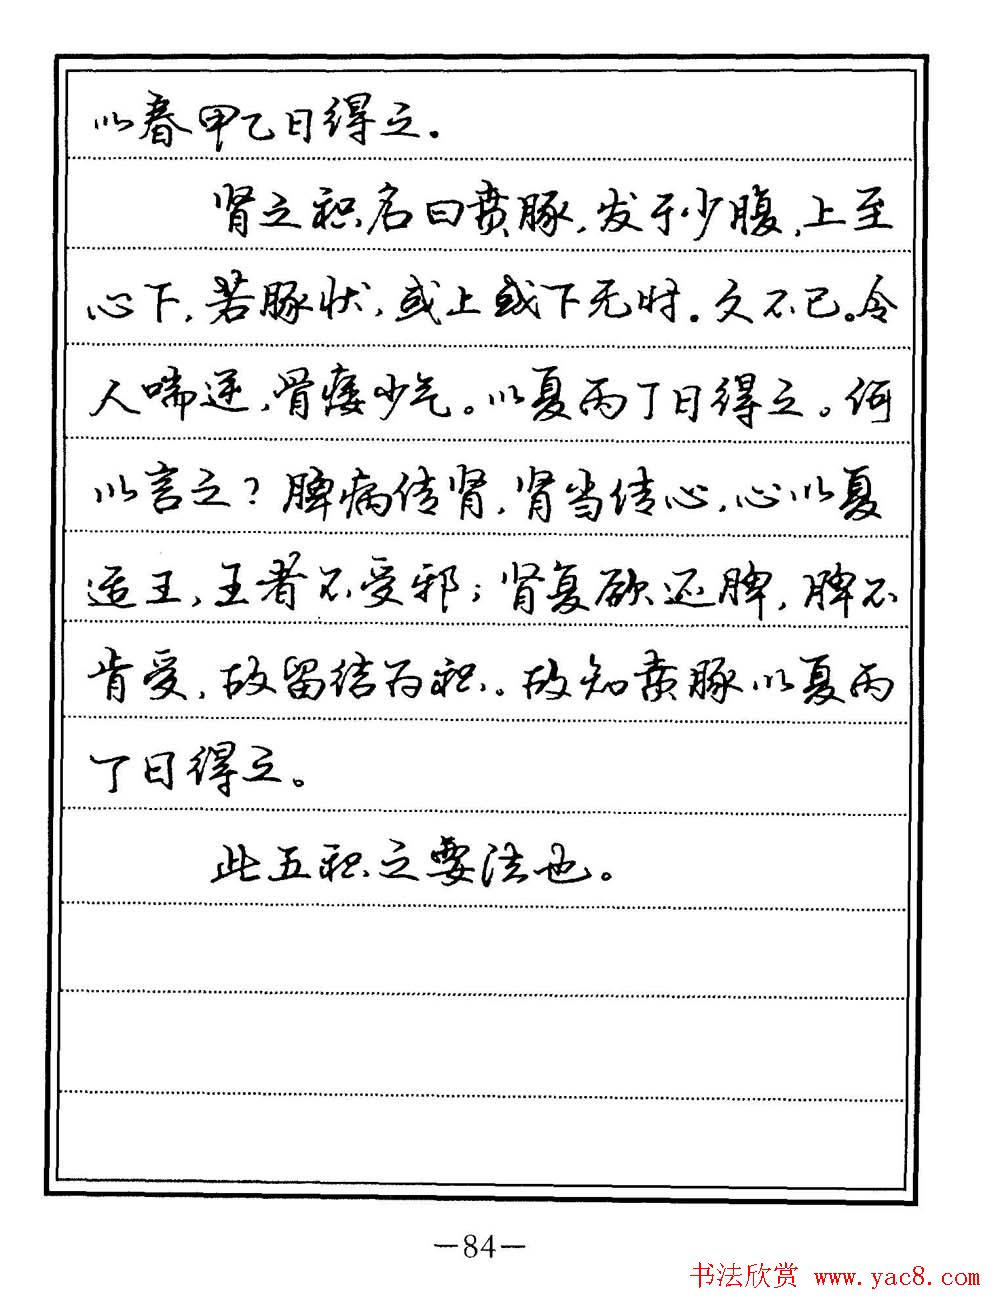 以春甲乙日得之.
肾之积名曰贲豚,发于少腹,上至
心下,若豚状,或上或下无时.久不已。令
人喘逆,骨痿少气。以夏丙丁日得之。何
以言之?脾病传肾,肾当传心,心以夏
适王,王者不受邪;肾复欲还脾,脾不
肯受,故留结为积。故知贲豚以夏丙
丁日得之。
此五积之要法也。
—84—
书法欣赏 www.yac8.com